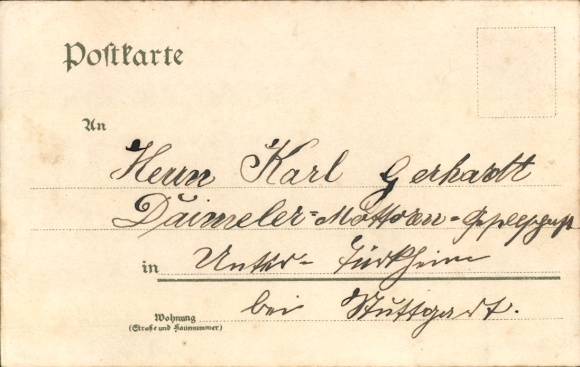 Postkarte
An
Herrn Karl Gerhardt
Daimeler-Mottoren-Gesellschaft
in Unter-Türkheim
bei Stuttgart.
Wohnung
(Straße und Hausnummer)